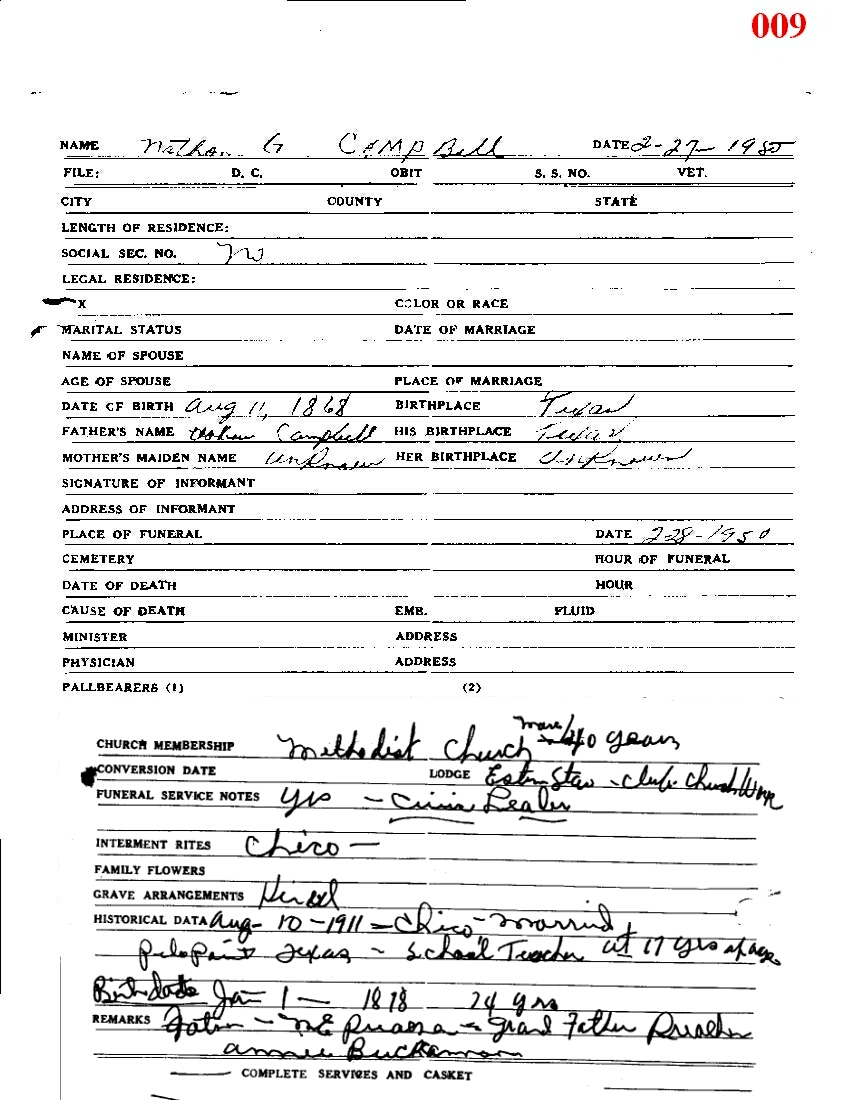 009
NAME Nathan G Campbell DATE 2-27-1950
FILE: D. C. OBIT S. S. NO. VET.
CITY COUNTY STATE
LENGTH OF RESIDENCE:
SOCIAL SEC. NO.
LEGAL RESIDENCE:
X COLOR OR RACE
MARITAL STATUS DATE OF MARRIAGE
NAME OF SPOUSE
AGE OF SPOUSE PLACE OF MARRIAGE
DATE OF BIRTH Aug 11, 1868 BIRTHPLACE Texas
FATHER'S NAME Campbell HIS BIRTHPLACE Texas
MOTHER'S MAIDEN NAME Unknown HER BIRTHPLACE Unknown
SIGNATURE OF INFORMANT
ADDRESS OF INFORMANT
PLACE OF FUNERAL DATE 2-28-1950
CEMETERY HOUR OF FUNERAL
DATE OF DEATH HOUR
CAUSE OF DEATH EMB. FLUID
MINISTER ADDRESS
PHYSICIAN ADDRESS
PALLBEARERS (1) (2)
more/
CHURCH MEMBERSHIP Methodist Church 40 years
CONVERSION DATE LODGE Estrn Star - Club. Church Work
FUNERAL SERVICE NOTES Yes - Civic Leader
INTERMENT RITES Chico -
FAMILY FLOWERS
GRAVE ARRANGEMENTS
HISTORICAL DATA Aug- 10-1911 - Chico - Married
Texas - School Teacher at 17 yrs of age
Birthdate Jan 1 - 1878
REMARKS Grand Father
Annie
COMPLETE SERVICES AND CASKET